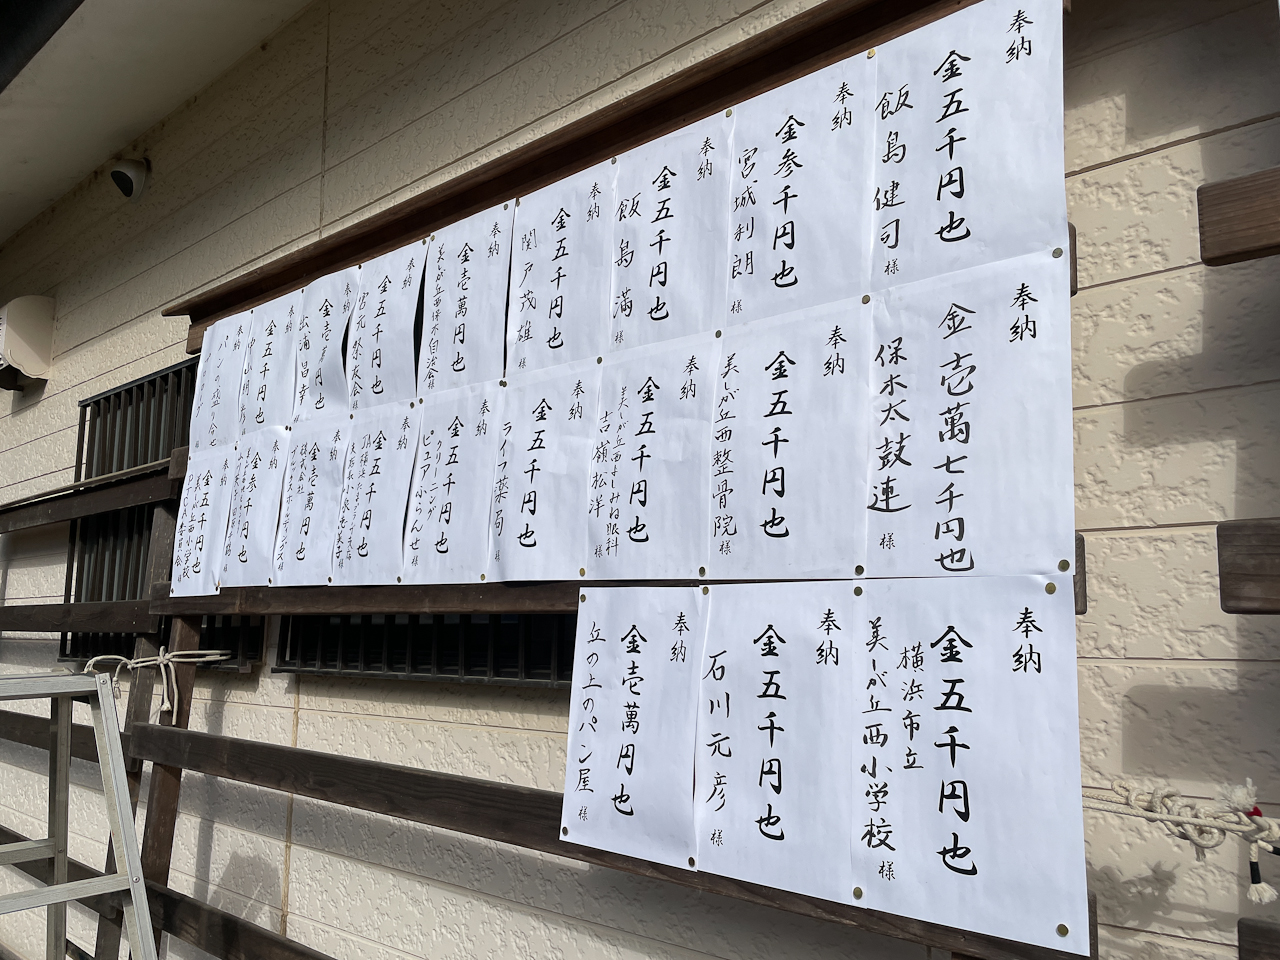 奉納
金五千円也
飯島健司様
奉納
金参千円也
宮城利朗様
奉納
金五千円也
飯島満様
奉納
金五千円也
関戸茂雄様
奉納
金壱萬円也
美しが丘西保木自治会様
奉納
金五千円也
宮元祭友会様
奉納
金壱萬円也
昌幸様
奉納
金五千円也
奉納
パンの
奉納
金壱萬七千円也
保木太鼓連様
奉納
金五千円也
美しが丘西整骨院様
奉納
金五千円也
美しが丘西よしみね眼科
吉嶺松洋様
奉納
金五千円也
ライフ薬局様
奉納
金五千円也
クリーニング
ピュアふらんせ様
奉納
金五千円也
奉納
金壱萬円也
株式会社
奉納
金参千円也
奉納
金五千円也
美しが丘西小学校
奉納
金五千円也
横浜市立
美しが丘西小学校様
奉納
金五千円也
石川元彦様
奉納
金壱萬円也
丘の上のパン屋様